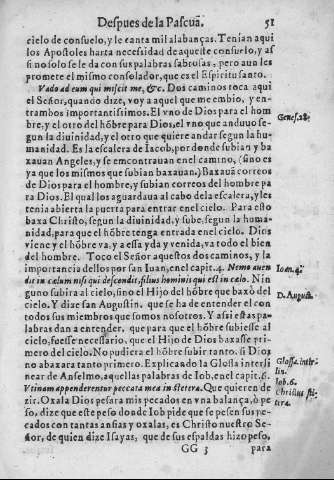 Despues de la Pascuã. 51
cielo de consuelo, y le canta mil alabanças. Tenian aqui
los Apostoles harta necesidad de aqueste consuelo, y as
si no solo se le da con sus palabras sabrosas, pero aun les
promete el mismo consolador, que es el Espiritu santo.
Vado ad eum qui misit me, &c. Dos caminos toca aqui
el Señor, quando dize, voy a aquel que me embio, y en-
trambos importantissimos. El vno de Dios para el hom
bre, y el otro del hõbre para Dios, el vno que anduuo se-
gun la diuinidad, y el otro que quiere andar segun la hu-
manidad. Es la escalera de Iacob, por donde subian y ba
xauan Angeles, y se emcontrauan en el camino, (sino es
ya que los mismos que subian baxauan.) Baxauã correos
de Dios para el hombre, y subian correos del hombre pa
ra Dios. El qual los aguardaua al cabo dela escalera, y les
tenia abierta la puerta para entrar en el cielo. Para esto
baxa Christo, segun la diuinidad, y sube, segun la huma-
nidad, para que el hõbre tenga entrada en el cielo. Dios
viene y el hõbre va, y a essa yda y venida, va todo el bien
del hombre. Toco el Señor aquestos dos caminos, y la
importancia dellos por san Iuan, en el capit. 4. Nemo ascen
dit in cœlum nisi qui descendit, filius hominis qui est in cœlo. Nin
guno subira al cielo, sino el Hijo del hõbre que baxò del
cielo. Y dize san Augustin. que se ha de entender el con
todos sus miembros que somos nosotros. Y assi estas pa-
labras dan a entender, que para que el hõbre subiesse al
cielo, fuesse necessario, que el Hijo de Dios baxasse pri-
mero del cielo. No pudiera el hõbre subir tanto, si Dios
no abaxara tanto primero. Explicando la Glossa interli
near de Anselmo, aquellas palabras de Iob, en el capit. 6.
Vtinam appenderentur peccata mea in statera. Que quieren de
zir. Oxala Dios pesara mis pecados en vna balança, ò pe
so, dize que este peso donde Iob pide que se pesen sus pe-
cados con tantas ansias y oxalas, es Christo nuestro Se-
ñor, de quien dize Isayas, que de sus espaldas hizo peso,
GG 3 para
Genes. 28.
Ioan. 4.
D. August.
Glossa inter-
lin.
Iob. 6.